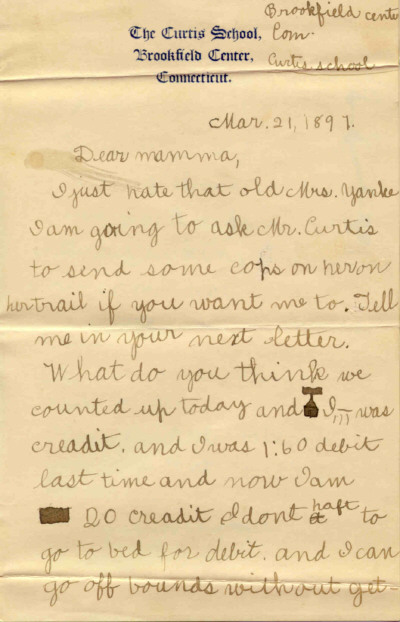 Brookfield cente
The Curtis School, Conn.
Brookfield Center, Curtis school
Connecticut.
Mar. 21, 1897.
Dear mamma,
I just hate that old Mrs. Yanke
I am going to ask Mr. Curtis
to send some cops on her on
her trail if you want me to. Tell
me in your next letter.
What do you think we
counted up today and I, was
creadit. and I was 1:60 debit
last time and now I am
20 creadit I dont haft to
go to bed for debit. and I can
go off bounds without get-